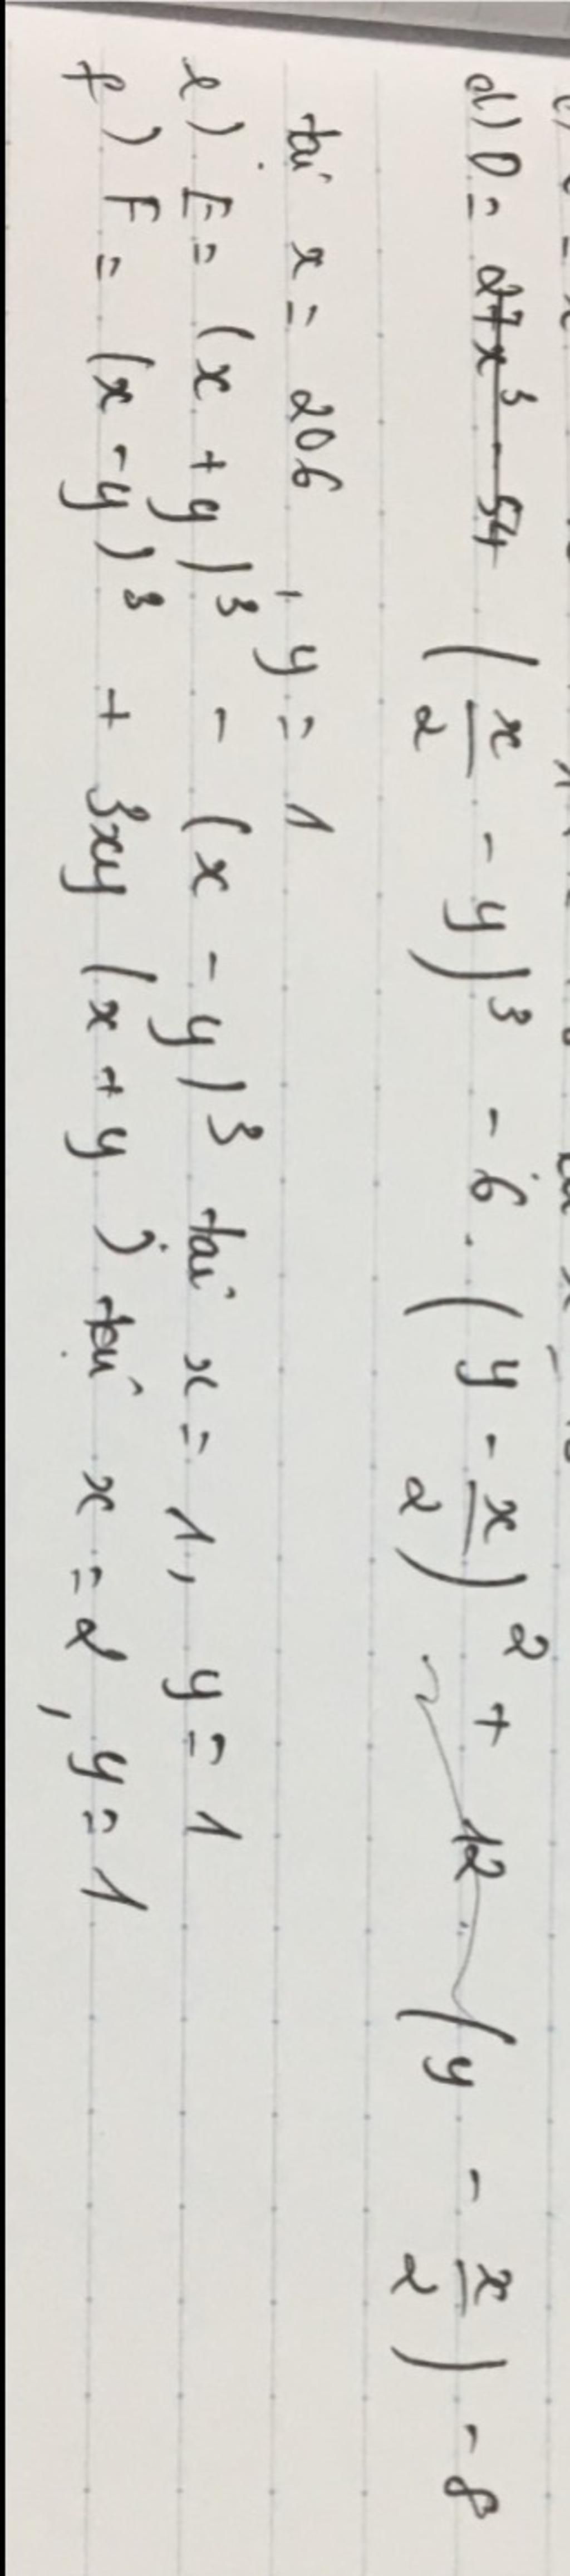 d) D = 27x³ - 54 (x/2 - y)³ - 6 . (y - x/2)² + 12 (y - x/2) - 8
tại x = 206 , y = 1
e) E = (x + y)³ - (x - y)³ tại x = 1, y = 1
f) F = (x - y)³ + 3xy (x + y) tại x = 2, y = 1